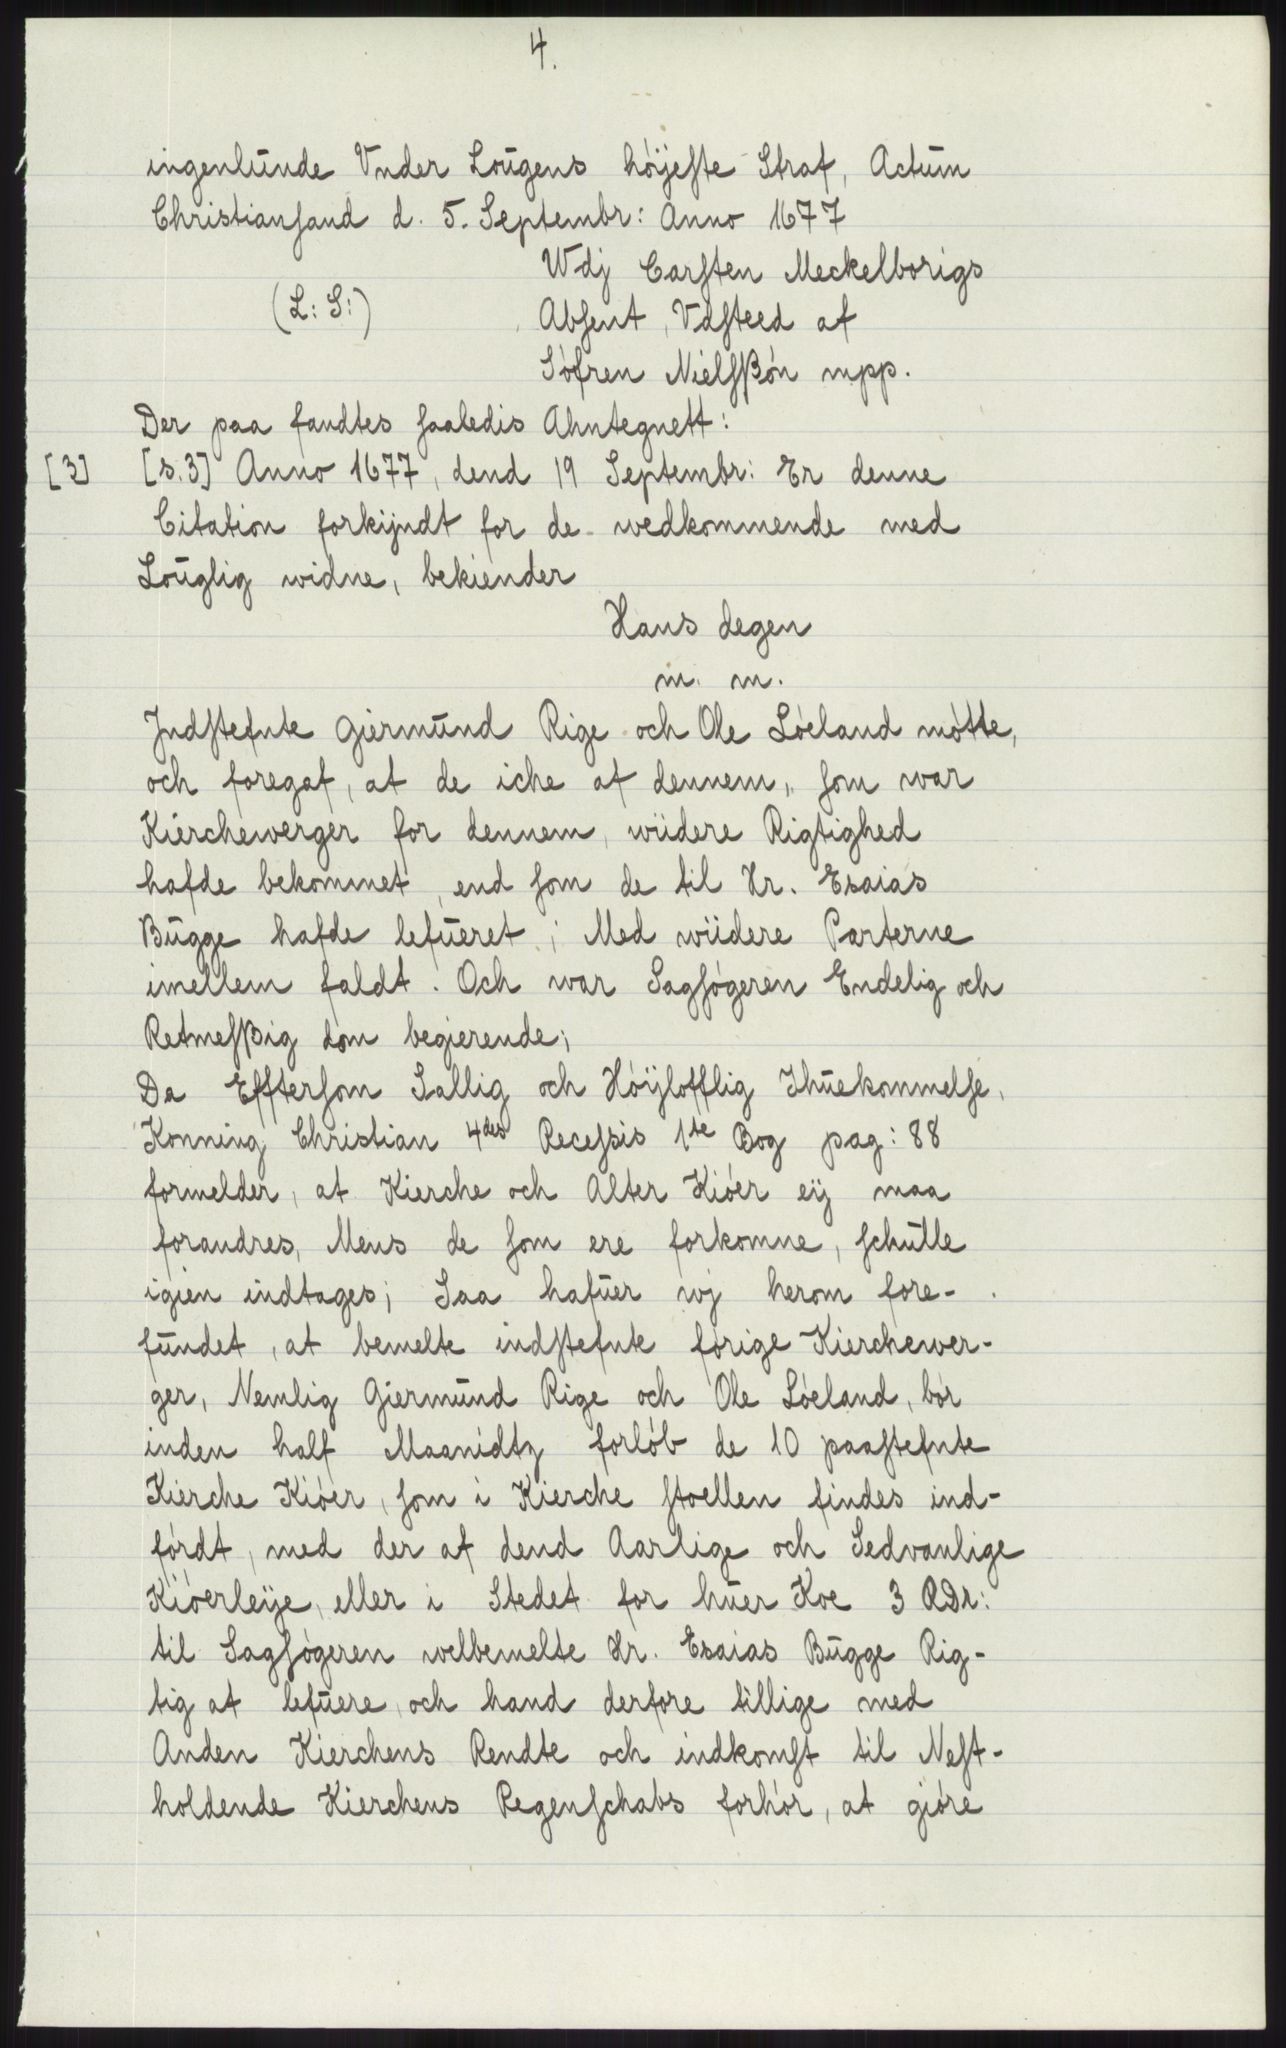 4.
ingenlunde Vnder Lougens höyeste Straf, Actum
Christiansand d. 5. Septembr: Anno 1677
Wdj Carsten Meckelborigs
(L: S:)
Absent, Vdsteed af
Söfren Nielsßön mpp.
Der paa fandtes saaledis Ahntegnett:
[3] [s.3] Anno 1677, dend 19 Septembr: Er denne
Citation forkijndt for de wedkommende med
Louglig widne, bekiender
Hans degen
m. m.
Jndstefnte Giermund Rige och Ole Löeland mötte,
och foregaf, at de iche af dennem, som war
Kierchewerger for dennem, wiidere Rigtighed
hafde bekommet, end som de til Hr. Esaias
Bugge hafde lefueret; Med wiidere Parterne
imellem faldt. Och war Sagsögeren Endelig och
Retmesßig dom begierende;
Da Efftersom Sallig och Höijlofflig Ihuekommelse,
Konning Christian 4des Recessis 1te Bog pag: 88
formelder, at Kierche och Alter Kiöer eij maa
forandres, Mens de som ere forkomne, schulle
igien indtages; Saa hafuer wj herom fore-
fundet, at bemelte indstefnte forige Kierchewer-
ger, Nemlig Giermund Rige och Ole Löeland, bör
inden half Maanidtz forlöb de 10 paastefnte
Kierche Kiöer, som i Kierche stoellen findes ind-
fördt, med der af dend Aarlige och Sedvanlige
Kiöerleije, eller i Stedet for huer Koe 3 RDr:
til Sagsögeren welbemelte Hr. Esaias Bugge Rig-
tig at lefuere, och hand derfore tillige med
Anden Kierchens Rendte och indkomst til Nest-
holdende Kierchens Regenschabs forhör, at giöre